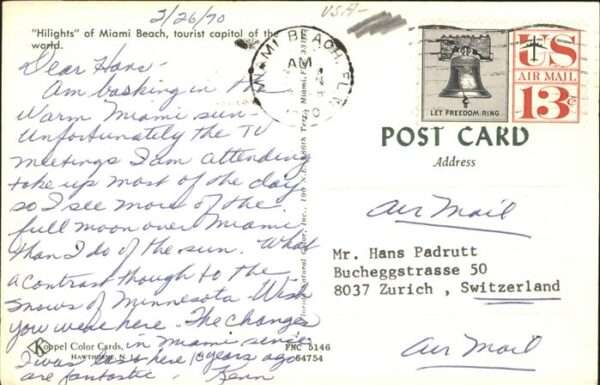 2/26/70
USA-
"Hilights" of Miami Beach, tourist capitol of the
world.
Dear Hans-
Am basking in the
warm Miami sun-
Unfortunately the TV
meetings I am attending
take up most of the day
so I see more of the
full moon over Miami
than I do of the sun. What
a contrast though to the
snows of Minnesota. Wish
you were here. The changes
in Miami since
I was last here 10 years ago
are fantastic.
Koppel Color Cards,
Hawthorne, N.J.
PNC 5146
64754
MIAMI BEACH, FLA
AM
LET FREEDOM RING
US
AIR MAIL
13¢
POST CARD
Address
Air Mail
Mr. Hans Padrutt
Bucheggstrasse 50
8037 Zurich , Switzerland
Air Mail